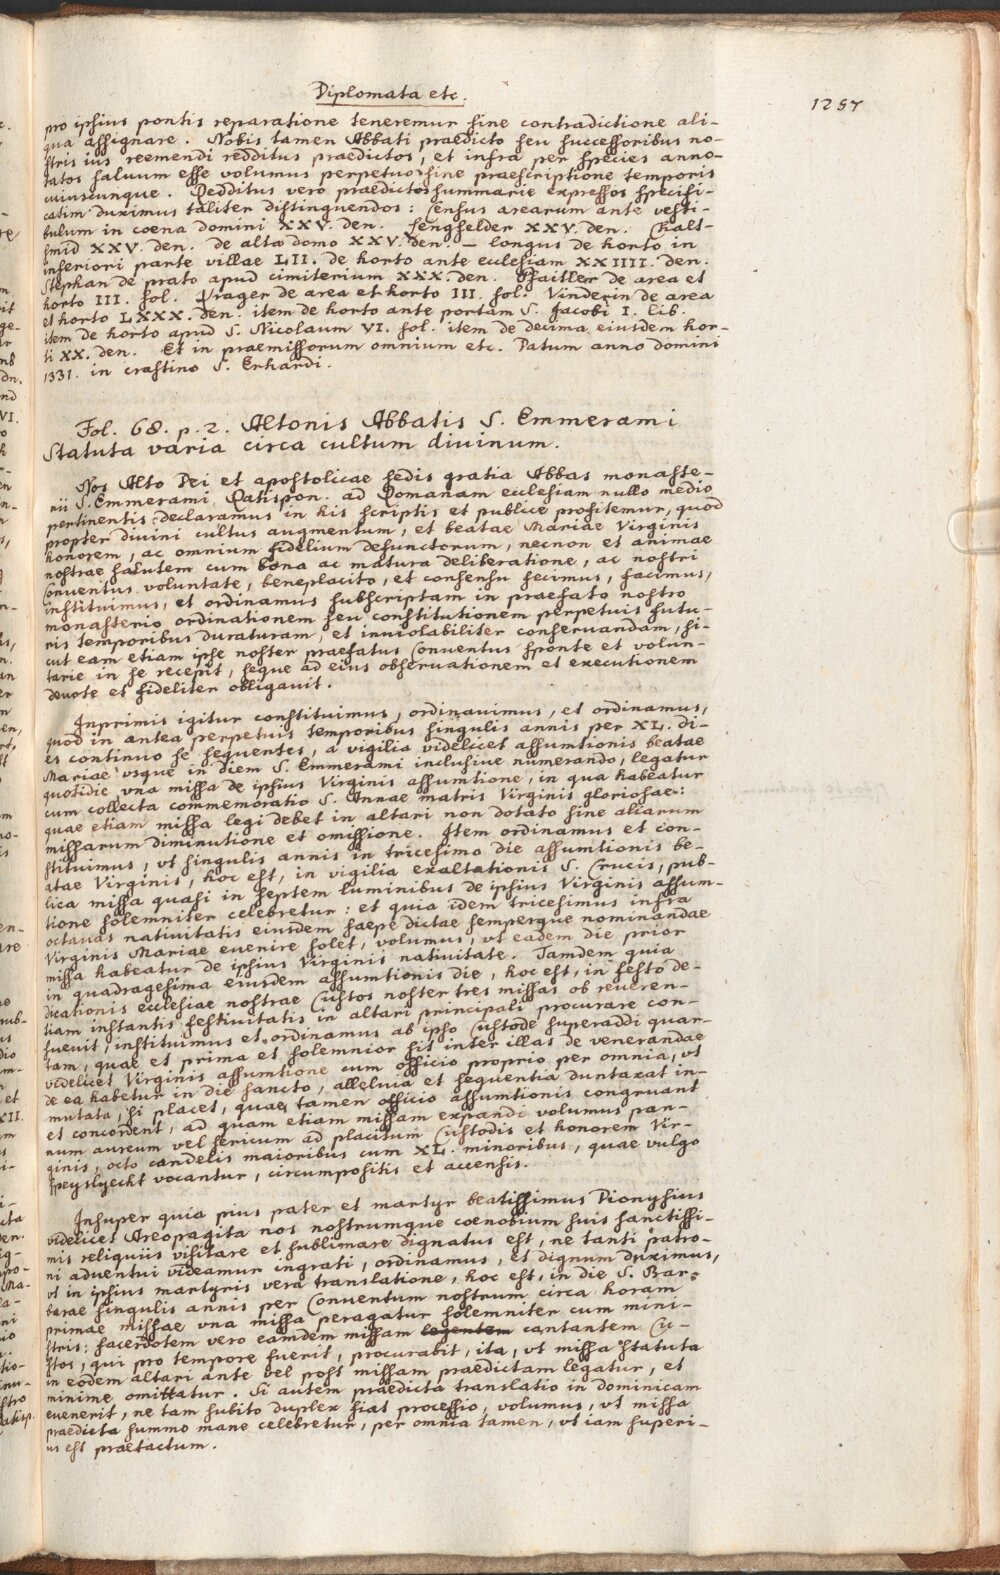 Diplomata etc.
1257
pro ipsius pontis reparatione teneremur sine contradictione ali-
qua assignare. Nobis tamen Abbati praedicto seu successoribus no-
stris ius reemendi redditus praedictos, et infra per species anno-
tatos saluum esse volumus perpetuo sine praescriptione temporis
cuiuscunque. Redditus vero praedictos summarie expressos specifi-
catim duximus taliter distinguendos: Census arearum ante vesti-
bulum in coena domini XXV. den. Senghselder XXV. den. Chalt-
smid XXV. den. de alta domo XXV. den. – longus de horto in
inferiori parte villae LII. de horto ante ecclesiam XXIIII. den.
Stephan de prato apud cimiterium XXX. den. Phaitler de area et
horto III. sol. Prager de area et horto III. sol. Vinderin de area
et horto LXXX. den. item de horto ante portam S. Jacobi I. lib.
item de horto apud S. Nicolaum VI. sol. item de decima eiusdem hor-
ti XX. den. Et in praemissorum omnium etc. Datum anno domini
1331. in crastino S. Erhardi.
Fol. 68. p. 2. Altonis Abbatis S. Emmerami
Statuta varia circa cultum diuinum.
Nos Alto Dei et apostolicae sedis gratia Abbas monaste-
rii S. Emmerami Ratispon. ad Romanam ecclesiam nullo medio
pertinentis declaramus in his scriptis et publice profitemur, quod
propter divini cultus augmentum, et beatae Mariae Virginis
honorem, ac omnium fidelium defunctorum, necnon et animae
nostrae salutem cum bona ac matura deliberatione, ac nostri
Conventus voluntate, beneplacito, et consensu fecimus, facimus,
instituimus, et ordinamus subscriptam in praefato nostro
monasterio ordinationem seu constitutionem perpetuis futu-
ris temporibus duraturam, et inviolabiliter conservandam, si-
cut eam etiam ipse noster praefatus Conventus sponte et volun-
tarie in se recepit, seque ad eius observationem et executionem
devote et fideliter obligavit.
Inprimis igitur constituimus, ordinavimus, et ordinamus,
quod in antea perpetuis temporibus singulis annis per XL. di-
es continuo se sequentes, a vigilia videlicet assumtionis beatae
Mariae usque in diem S. Emmerami inclusive numerando, legatur
quotidie vna missa de ipsius Virginis assumtione, in qua habeatur
cum collecta commemoratio S. Annae matris Virginis gloriosae:
quae etiam missa legi debet in altari non dotato sine aliarum
missarum diminutione et omissione. Item ordinamus et con-
stituimus, vt singulis annis in tricesimo die assumtionis be-
atae Virginis, hoc est, in vigilia exaltationis S. Crucis, pub-
lica missa quasi in septem luminibus de ipsius Virginis assum-
tione solemniter celebretur: et quia idem tricesimus infra
octavas nativitatis eiusdem saepe dictae semperque nominandae
Virginis Mariae evenire solet, volumus, vt eadem die prior
missa habeatur de ipsius Virginis nativitate. Tamdem quia
in quadragesima eiusdem assumtionis die, hoc est, in festo de-
dicationis ecclesiae nostrae Custos noster tres missas ob reveren-
tiam instantis festivitatis in altari principali procurare con-
suevit, instituimus et ordinamus ab ipso Custode superaddi quar-
tam, quae et prima et solemnior sit inter illas de venerandae
videlicet Virginis assumtione cum officio proprio per omnia, vt
de ea habetur in die sancto, alleluia et sequentia duntaxat im-
mutata, si placet, quae tamen officio assumtionis congruant
et concordent, ad quam etiam missam expandi volumus pan-
num aureum vel sericum ad placitum Custodis et honorem Vir-
ginis, octo candelis maioribus cum XL. minoribus, quae vulgo
speyslyecht vocantur, circumpositis et accensis.
Insuper quia pius pater et martyr beatissimus Dionysius
videlicet Areopagita nos nostrumque coenobium suis sanctissi-
mis reliquiis visitare et sublimare dignatus est, ne tanti patro-
ni adventui videamur ingrati, ordinamus, et dignum duximus,
vt in ipsius martyris vera translatione, hoc est, in die S. Bar-
barae singulis annis per Conventum nostrum circa horam
primae missae vna missa peragatur solemniter cum mini-
stris; sacerdotem vero eamdem missam legentem cantantem Cu-
stos, qui pro tempore fuerit, procurabit, ita, vt missa statuta
in eodem altari ante vel post missam praedictam legatur, et
minime omittatur. Si autem praedicta translatio in dominicam
evenerit, ne tam subito duplex fiat processio, volumus, vt missa
praedicta summo mane celebretur, per omnia tamen, vt iam superi-
us est praetactum.